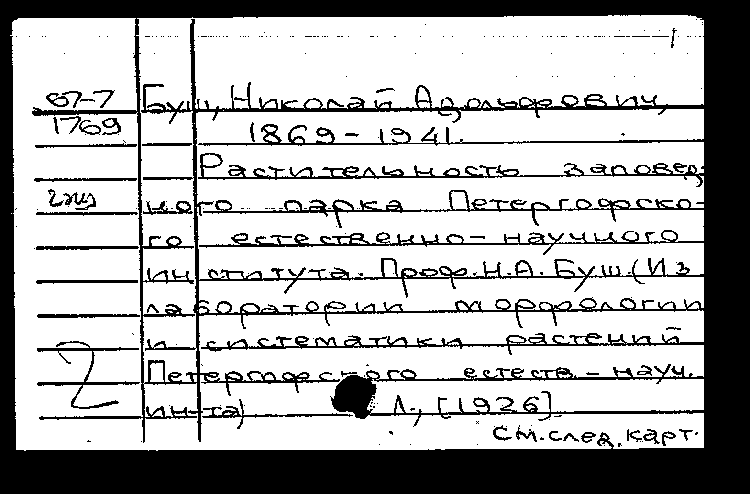 1
67-7 Буш, Николай Адольфович,
1769 1869-1941.
Растительность заповед-
2 экз ного парка Петергофско-
го естественно-научного
института. Проф. Н.А. Буш. (Из
лаборатории морфологии
и систематики растений
2 Петергофского естеств-науч.
ин-та) Л., [1926]
См. след. карт.